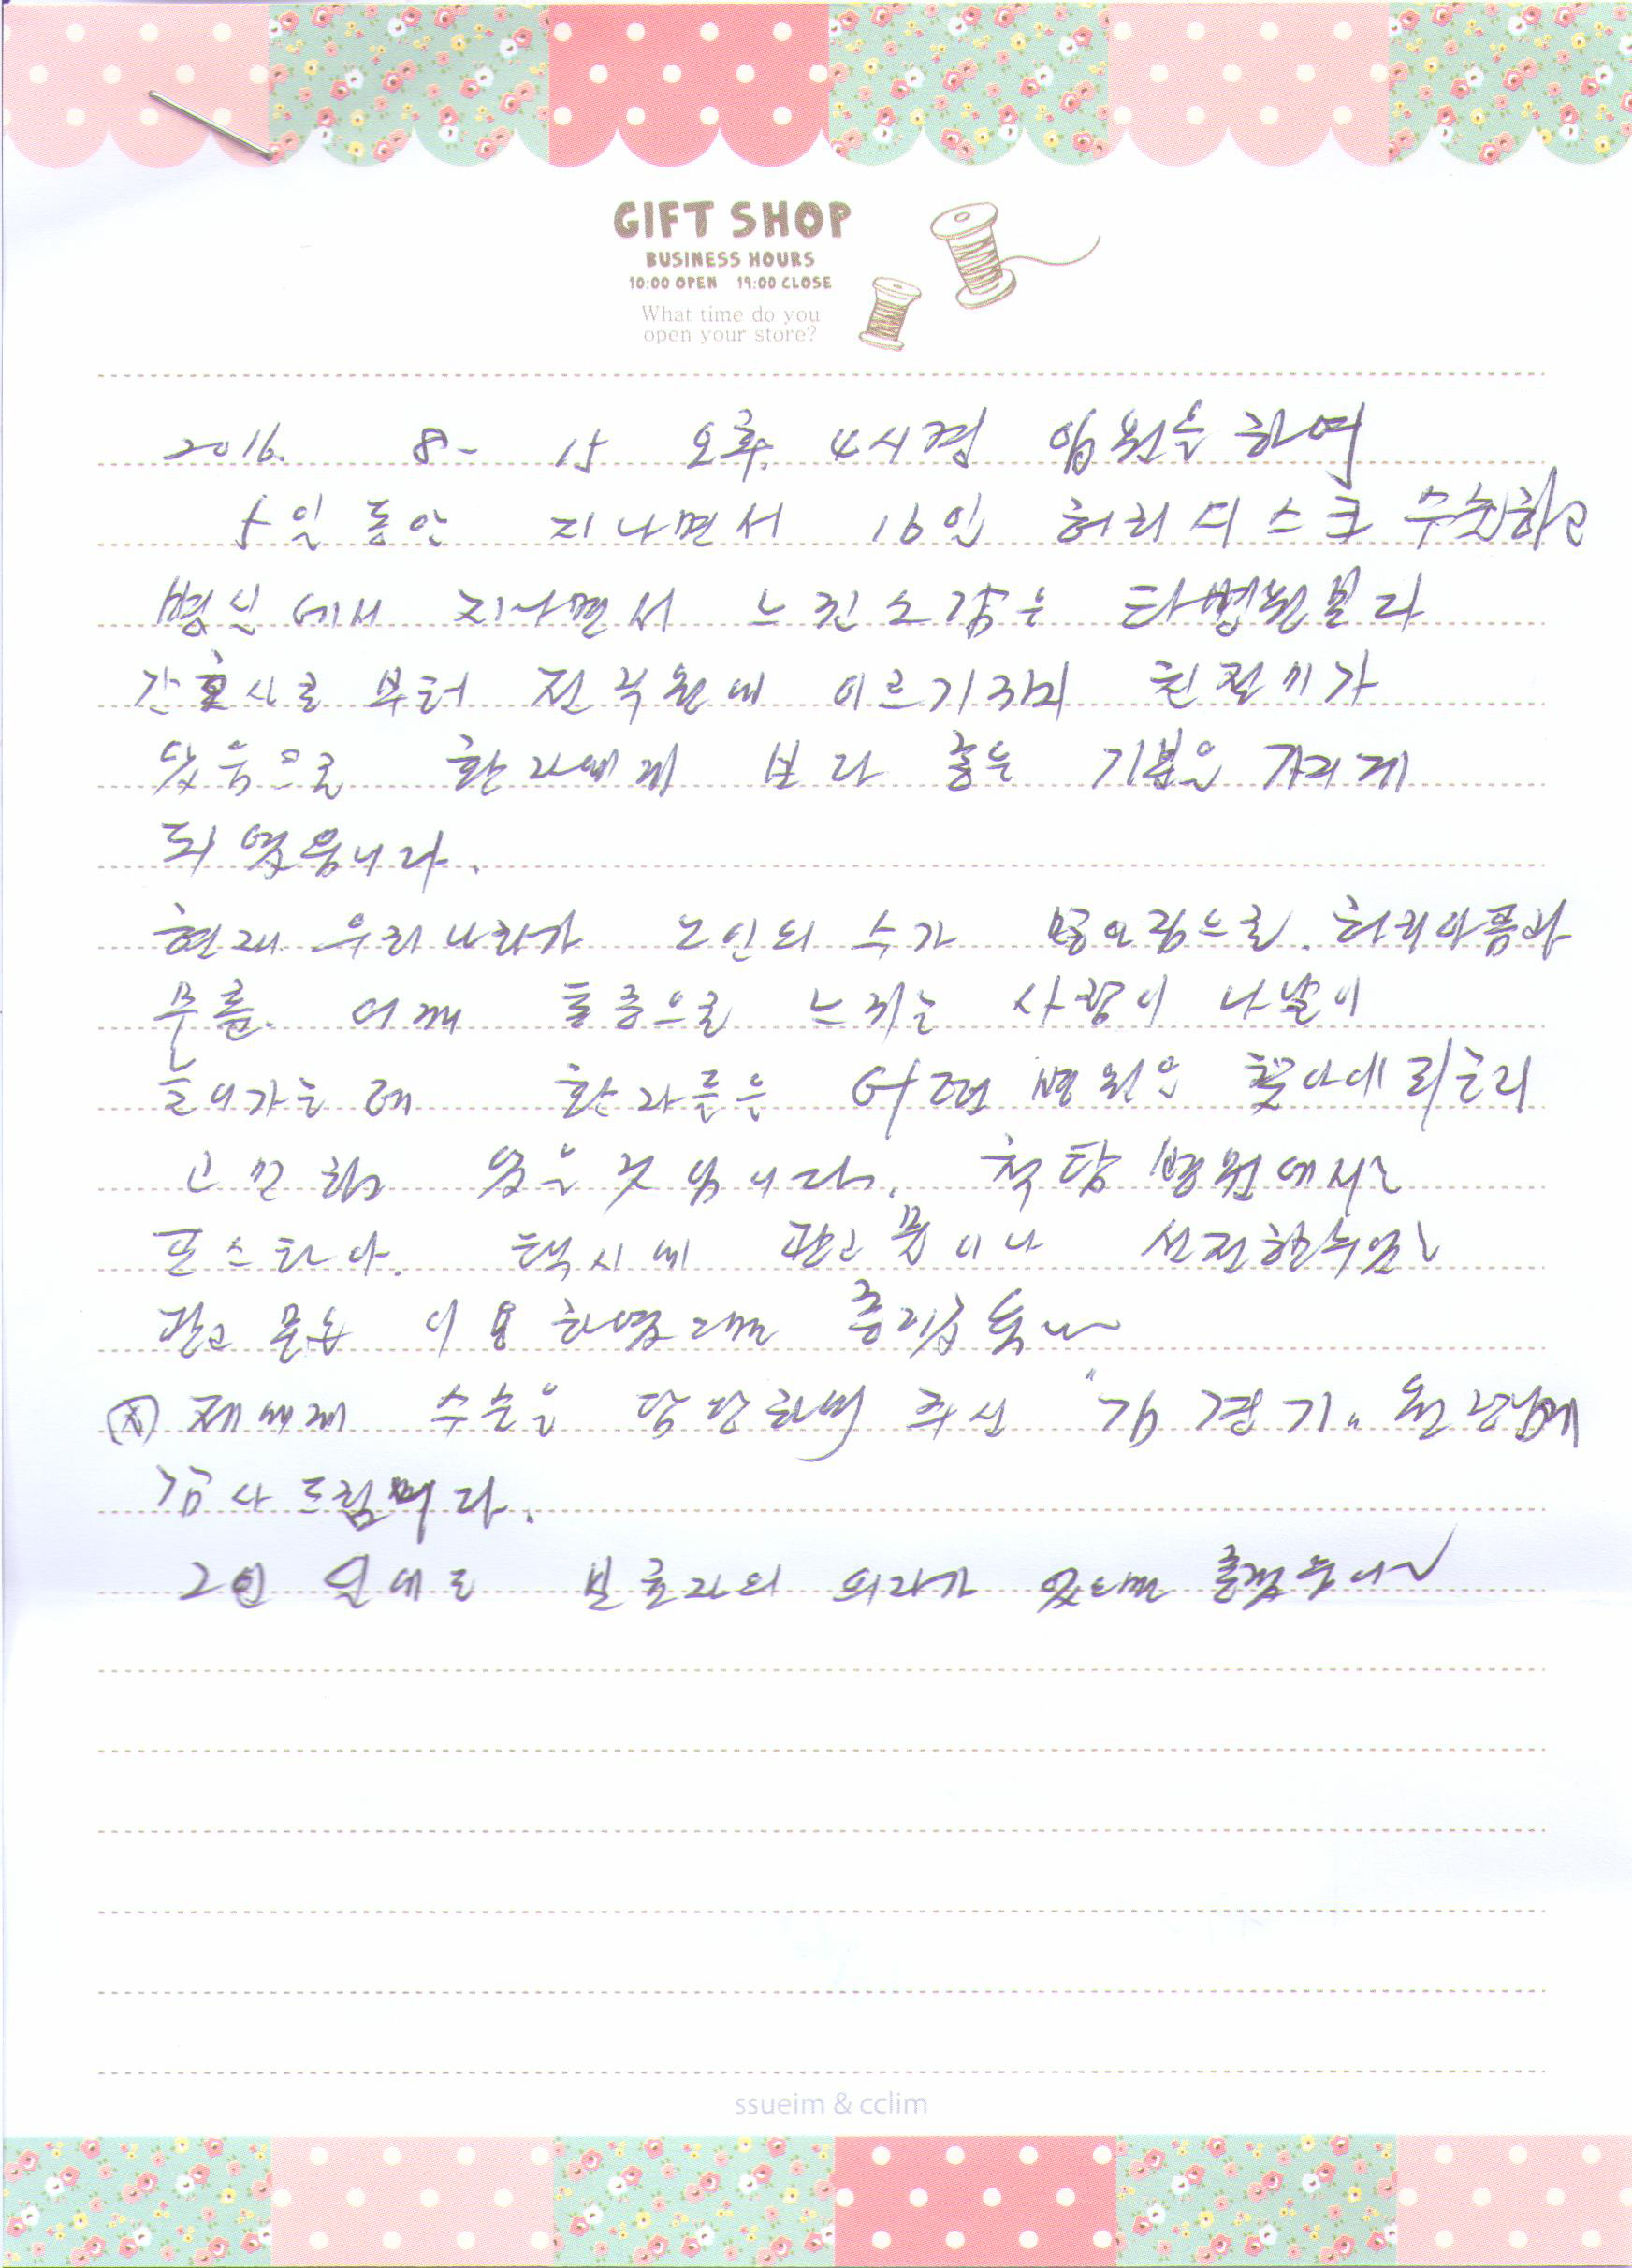 GIFT SHOP
BUSINESS HOURS
10:00 OPEN 19:00 CLOSE
What time do you
open your store?
2016. 8- 15 오후 4시경 입원을 하여
5일 동안 지나면서 16일 허리 디스크 수술하고
병실에서 지나면서 느낀 소감은 타병원보다
간호사로 부터 전직원에 이르기까지 친절미가
있음으로 환자에게 보다 좋은 기분을 가지게
되였읍니다.
현재 우리나라가 노인의 수가 많아짐으로. 허리아픔과
무릎. 어깨 통증으로 느끼는 사람이 나날이
늘어가는데 환자들은 어떤 병원을 찾아야
고민하고 있을 것 입니다. 척탑병원에서는
포스타아. 택시에 광고물이나 선전할수있는
광고물을 이용하였으면
제에게 수술을 담당하여 주신 "김경기" 원장님께
감사드립니다.
2인 실에도 보호자의 의자가 있으면
ssueim & cclim